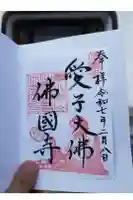 奉拝 令和七年二月八日
愛子大佛
佛國寺